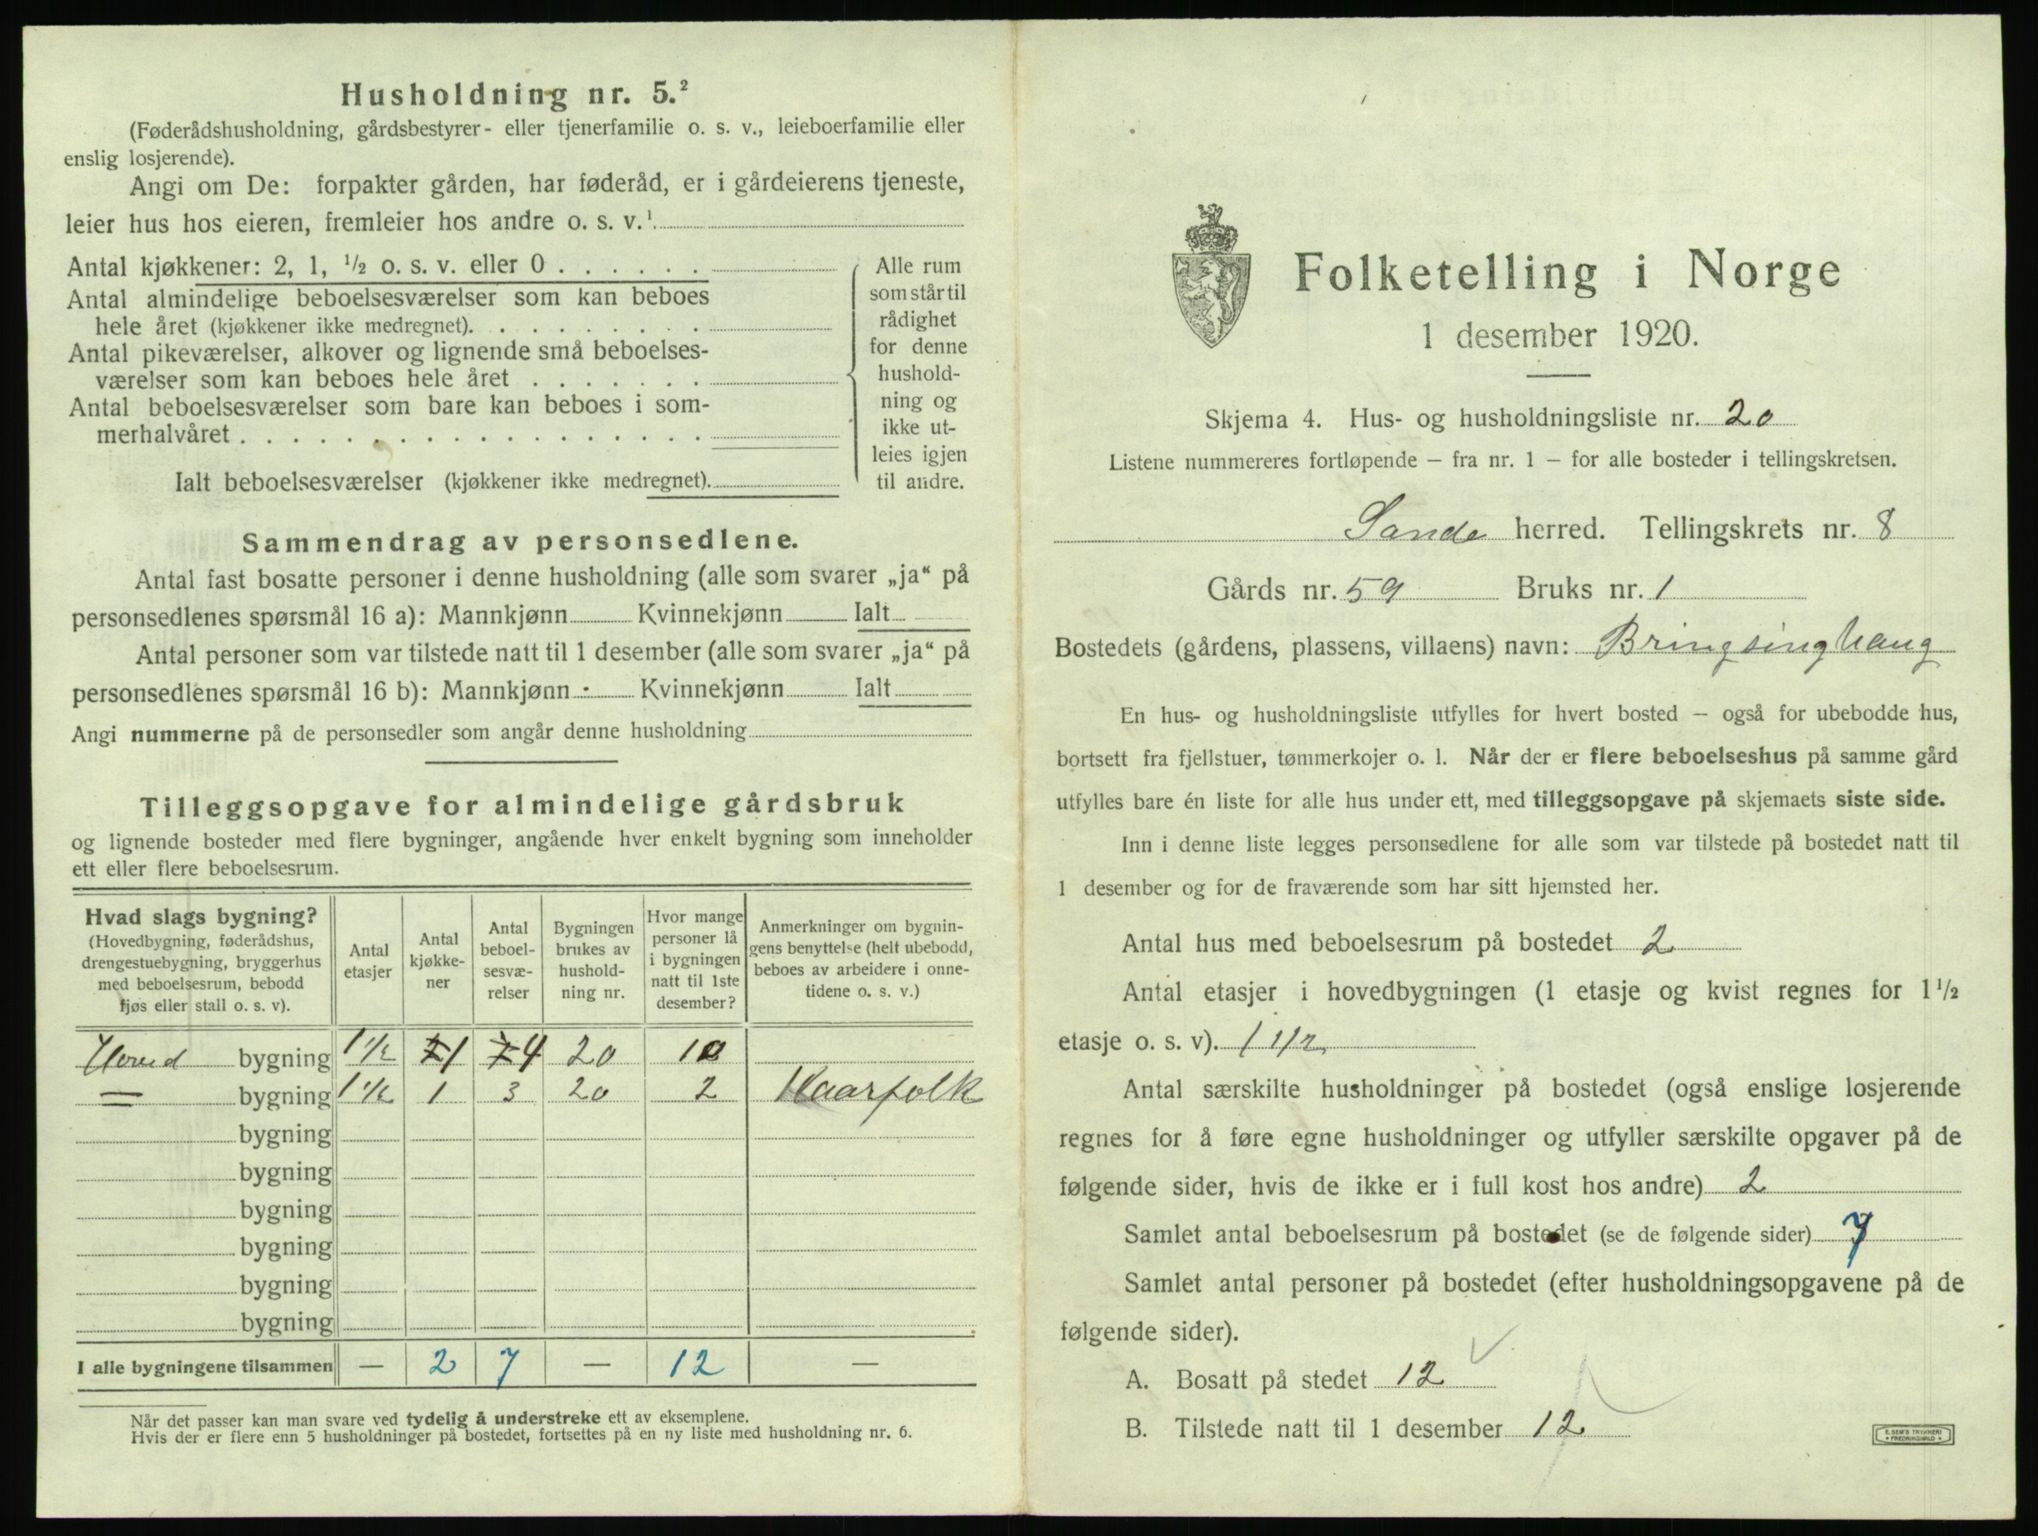 Husholdning nr. 5.²
(Føderådshusholdning, gårdsbestyrer- eller tjenerfamilie o. s. v., leieboerfamilie eller
enslig losjerende).
Angi om De: forpakter gården, har føderåd, er i gårdeierens tjeneste,
leier hus hos eieren, fremleier hos andre o. s. v.¹
Antal kjøkkener: 2, 1, ½ o. s. v. eller 0 . . . . . .
Antal almindelige beboelsesværelser som kan beboes
hele året (kjøkkener ikke medregnet). . . . . . . . .
Antal pikeværelser, alkover og lignende små beboelses-
værelser som kan beboes hele året . . . . . . .
Antal beboelsesværelser som bare kan beboes i som-
merhalvåret . . . . . . . . . . . . . . . . . .
Ialt beboelsesværelser (kjøkkener ikke medregnet).
Alle rum
som står til
rådighet
for denne
hushold-
ning og
ikke ut-
leies igjen
til andre.
Sammendrag av personsedlene.
Antal fast bosatte personer i denne husholdning (alle som svarer „ja“ på
personsedlenes spørsmål 16 a): Mannkjønn Kvinnekjønn Ialt
Antal personer som var tilstede natt til 1 desember (alle som svarer „ja“ på
personsedlenes spørsmål 16 b): Mannkjønn Kvinnekjønn Ialt
Angi nummerne på de personsedler som angår denne husholdning
Tilleggsopgave for almindelige gårdsbruk
og lignende bosteder med flere bygninger, angående hver enkelt bygning som inneholder
ett eller flere beboelsesrum.
Hvad slags bygning?
(Hovedbygning, føderådshus,
drengestuebygning, bryggerhus
med beboelsesrum, bebodd
fjøs eller stall o. s. v).
Antal
etasjer
Antal
kjøkke-
ner
Antal
beboel-
sesvæ-
relser
Bygningen
brukes av
hushold-
ning nr.
Hvor mange
personer lå
i bygningen
natt til 1ste
desember?
Anmerkninger om bygnin-
gens benyttelse (helt ubebodd,
beboes av arbeidere i onne-
tidene o. s. v.)
Hoved bygning 1 ½ 1 4 20 10
— bygning 1 ½ 1 3 20 2 Kaarfolk
bygning
bygning
bygning
bygning
bygning
bygning
I alle bygningene tilsammen — 2 7 — 12 —
Når det passer kan man svare ved tydelig å understreke ett av eksemplene.
Hvis der er flere enn 5 husholdninger på bostedet, fortsettes på en ny liste med husholdning nr. 6.
Folketelling i Norge
1 desember 1920.
Skjema 4. Hus- og husholdningsliste nr. 20
Listene nummereres fortløpende — fra nr. 1 — for alle bosteder i tellingskretsen.
Sande herred. Tellingskrets nr. 8
Gårds nr. 59 Bruks nr. 1
Bostedets (gårdens, plassens, villaens) navn: Bringsinghaug
En hus- og husholdningsliste utfylles for hvert bosted — også for ubebodde hus,
bortsett fra fjellstuer, tømmerkojer o. l. Når der er flere beboelseshus på samme gård
utfylles bare én liste for alle hus under ett, med tilleggsopgave på skjemaets siste side.
Inn i denne liste legges personsedlene for alle som var tilstede på bostedet natt til
1 desember og for de fraværende som har sitt hjemsted her.
Antal hus med beboelsesrum på bostedet 2
Antal etasjer i hovedbygningen (1 etasje og kvist regnes for 1½
etasje o. s. v). 1 1/2
Antal særskilte husholdninger på bostedet (også enslige losjerende
regnes for å føre egne husholdninger og utfyller særskilte opgaver på de
følgende sider, hvis de ikke er i full kost hos andre) 2
Samlet antal beboelsesrum på bostedet (se de følgende sider) 7
Samlet antal personer på bostedet (efter husholdningsopgavene på de
følgende sider).
A. Bosatt på stedet 12
B. Tilstede natt til 1 desember 12
E. SEM'S TRYKKERI
FREDRIKSHALD